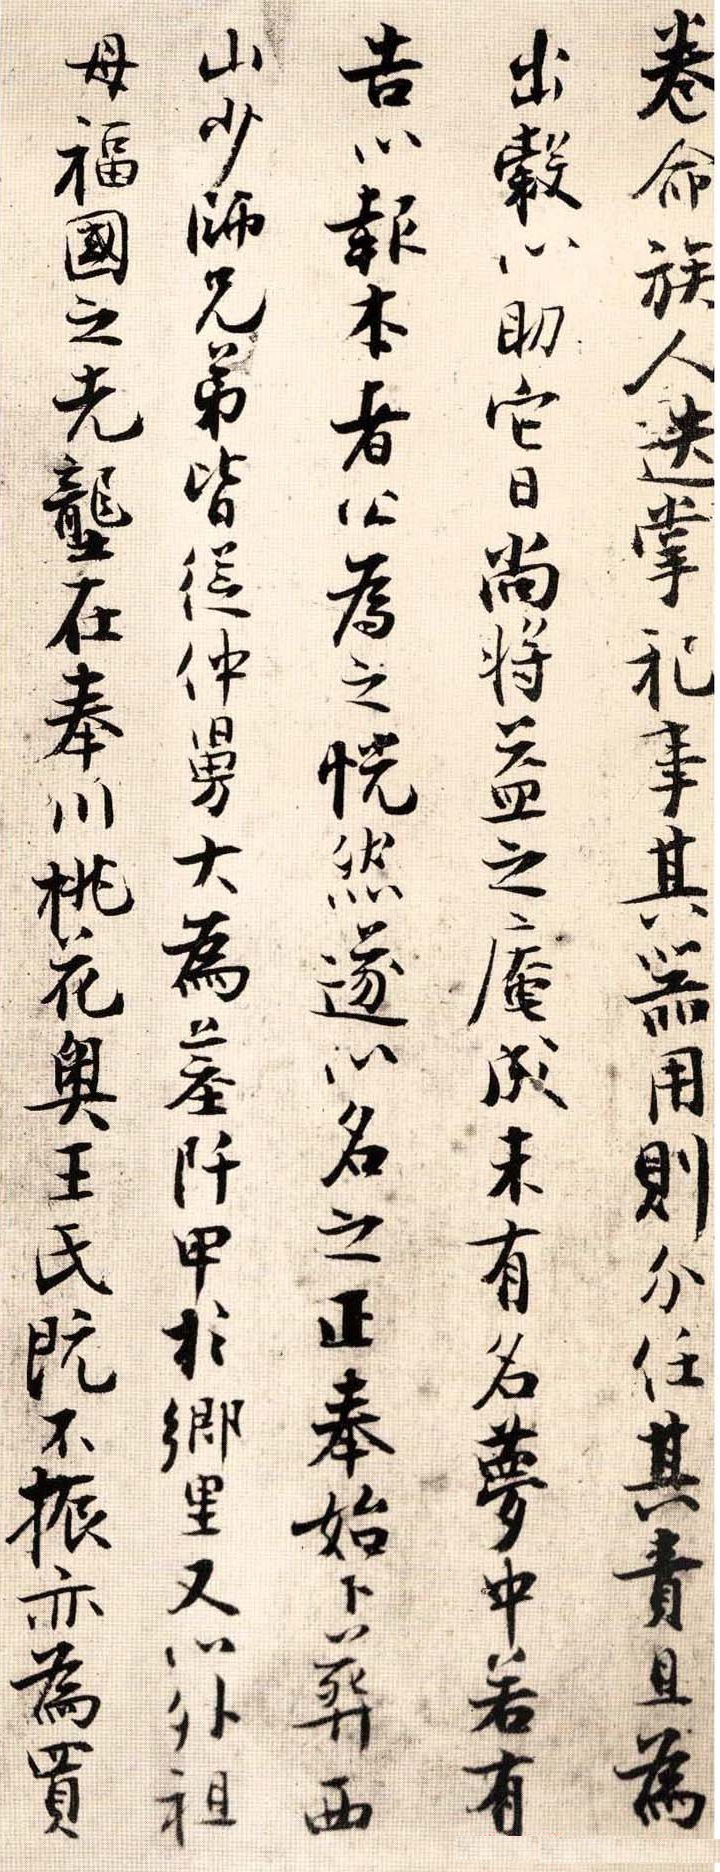 卷命族人迭掌祀事其器用則分任其責且為
出穀以助它日尚將益之庵成未有名夢中若有
告以報本者公為之恍然遂以名之正奉始卜葬西
山少師兄弟皆從仲舅大為墓阡甲於鄉里又以外祖
母福國之先壟在奉川桃花奧王氏既不振亦為買